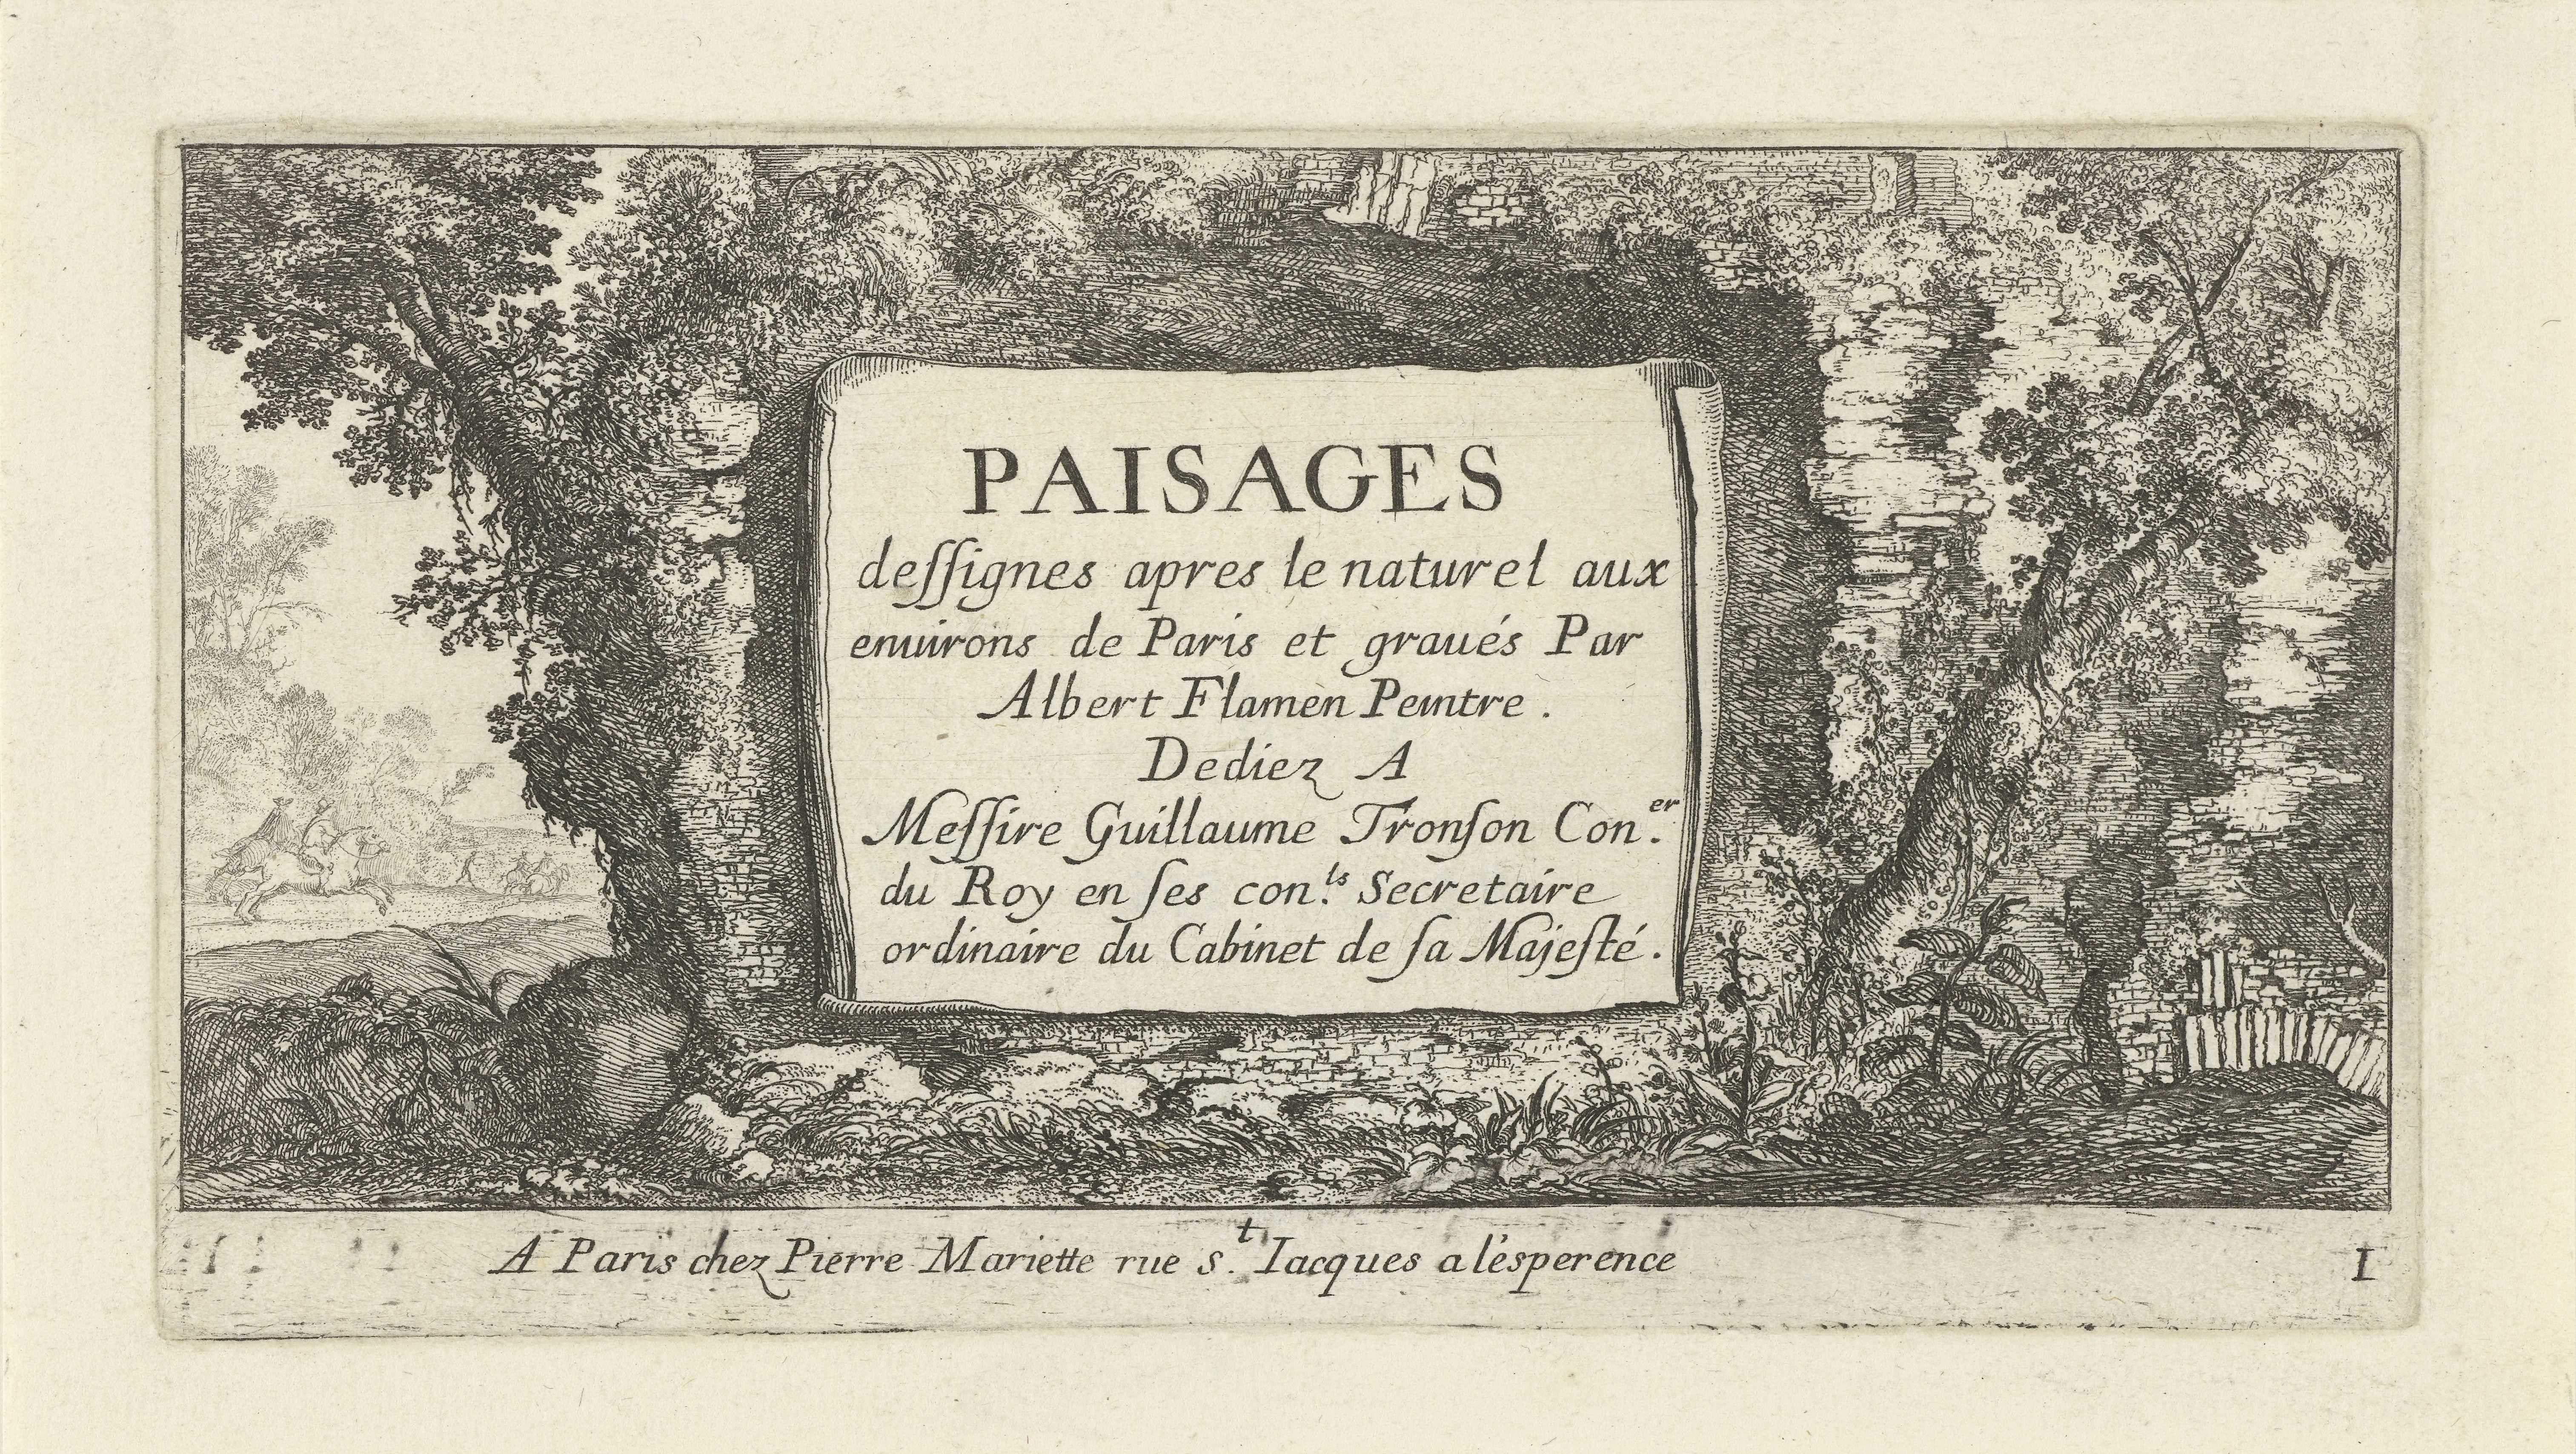 PAISAGES
deſſignes apres le naturel aux
enuirons de Paris et graués Par
Albert Flamen Peintre .
Dediez A
Meſſire Guillaume Tronſon Con.er
du Roy en ſes con.ls Secretaire
ordinaire du Cabinet de ſa Majeſté .
A Paris chez Pierre Mariette rue S.t Iacques a l'esperence
1